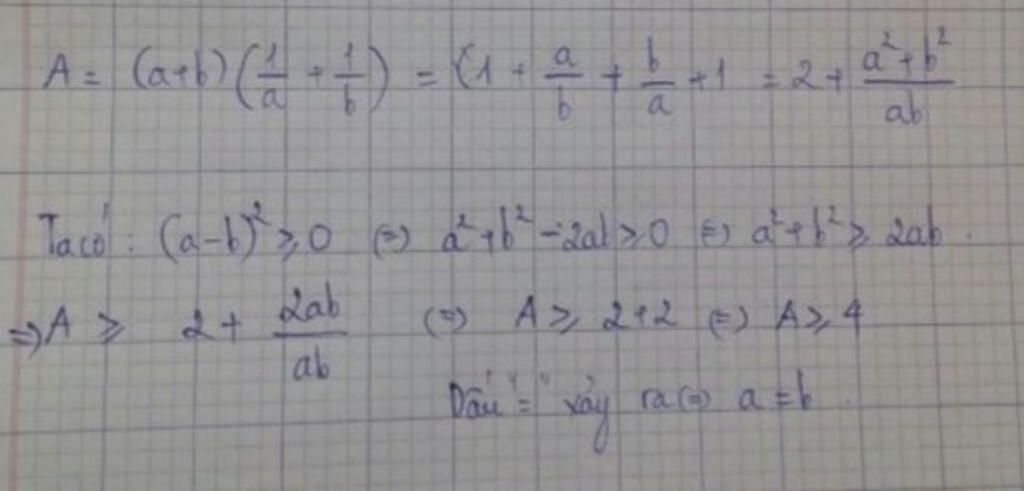 A = (a+b)(1/a + 1/b) = (1 + a/b + b/a + 1 = 2 + (a²+b²)/ab
Ta có : (a-b)² ≥ 0 (=) a²+b² - 2ab ≥ 0 (=) a²+b² ≥ 2ab.
=> A ≥ 2 + 2ab/ab (=) A ≥ 2+2 (=) A ≥ 4
Dấu "=" xảy ra (=) a = b.